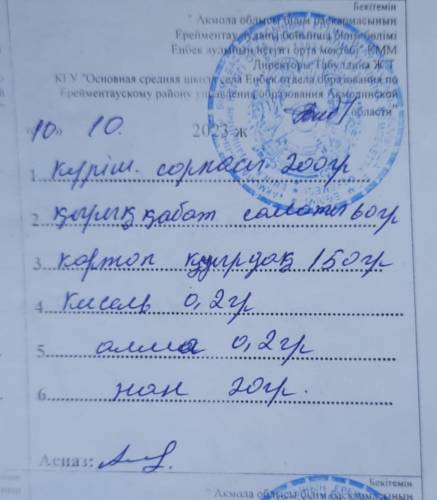 Бекітемін
" Ақмола облысы білім басқармасының
Ерейментау ауданы бойынша білім бөлімі
Еңбек ауылының негізгі орта мектебі" КММ
Директоры Ж Т
КГУ "Основная средняя школа села Енбек отдела образования по
Ерейментаускому району управления образования Акмолинской
области"
«10» 10. 2023 ж
1. күріш сорпасы 200гр
2. қырық қабат салаты 60гр
3. картоп қуырдақ 150гр
4. Кисель 0,2гр
5. алма 0,2гр
6. нан 20гр.
Аспаз:
Бекітемін
" Ақмола облысы білім басқармасының